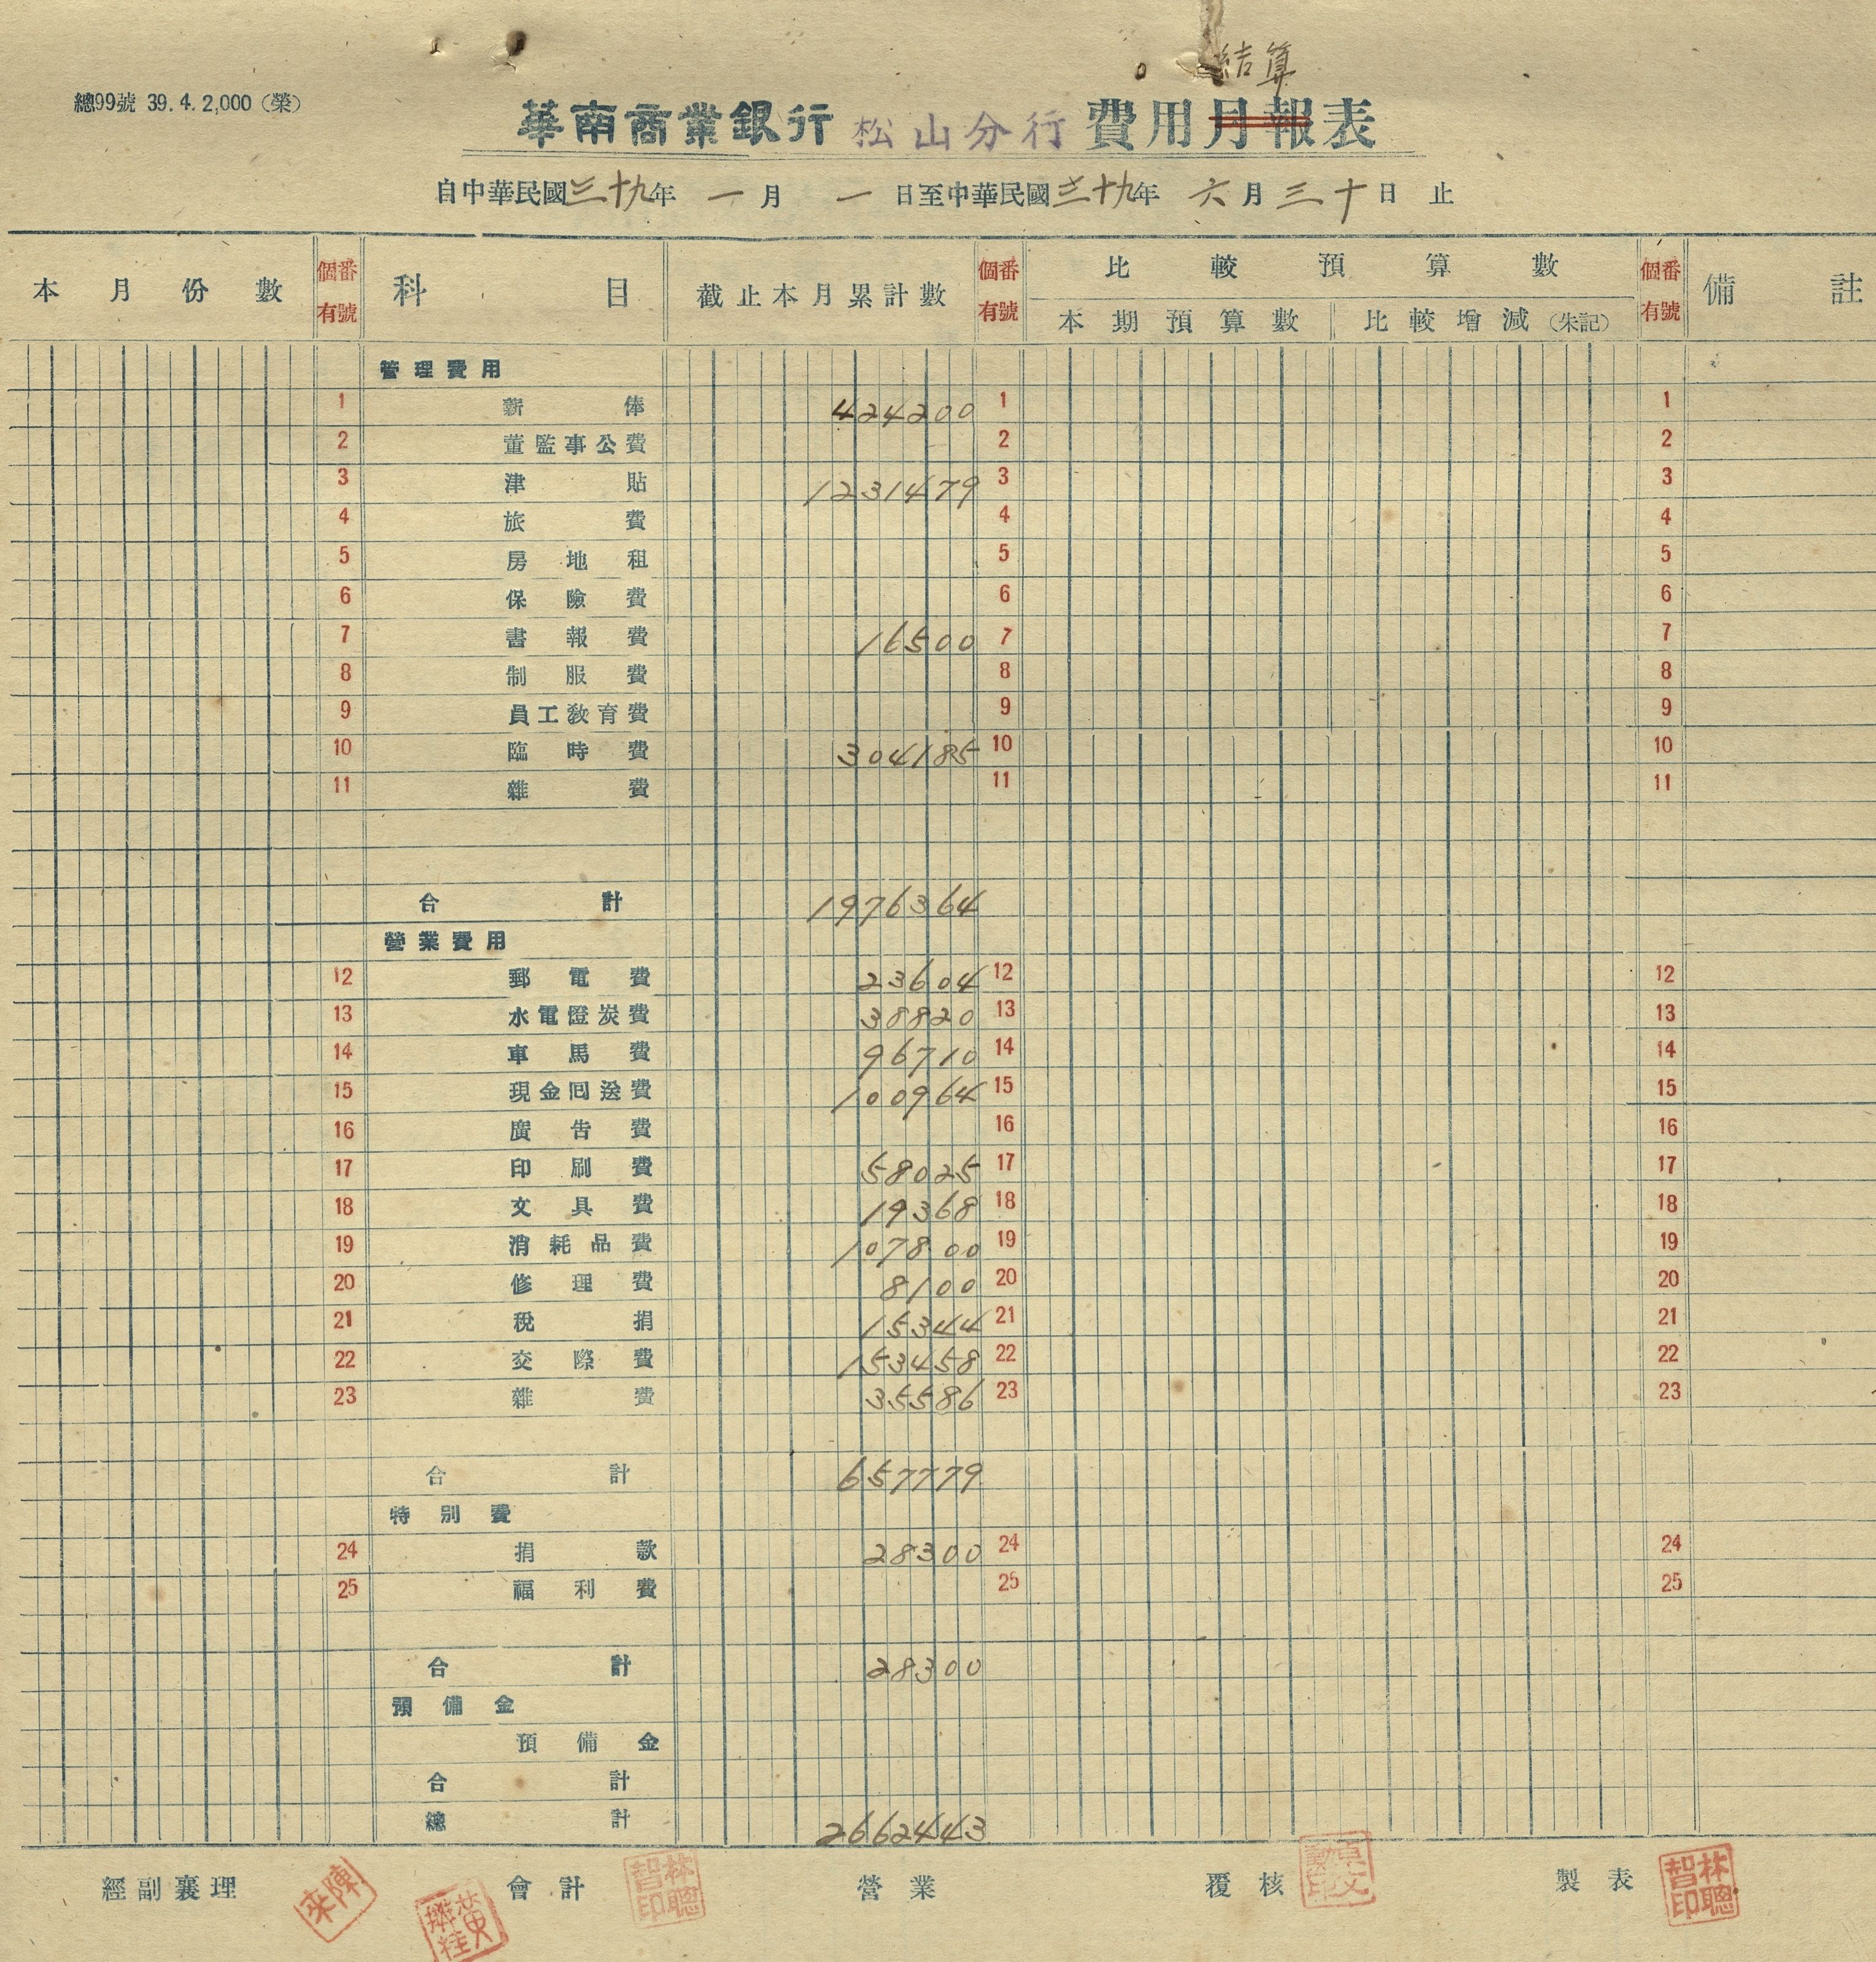 總99號 39.4.2,000（榮）
結算
華南商業銀行 松山分行 費用月報表
自中華民國三十九年 一月 一日至中華民國三十九年 六月三十日止
本月份數 個有番號 科目 截止本月累計數 個有番號 比較預算數 個有番號 備註
本期預算數 比較增減（朱記）
管理費用
1 薪俸 424200 1 1
2 董監事公費 2 2
3 津貼 1231479 3 3
4 旅費 4 4
5 房地租 5 5
6 保險費 6 6
7 書報費 16500 7 7
8 制服費 8 8
9 員工教育費 9 9
10 臨時費 304185 10 10
11 雜費 11 11
合計 1976364
營業費用
12 郵電費 23604 12 12
13 水電燈炭費 38820 13 13
14 車馬費 96710 14 14
15 現金回送費 100964 15 15
16 廣告費 16 16
17 印刷費 58025 17 17
18 文具費 19368 18 18
19 消耗品費 107800 19 19
20 修理費 8100 20 20
21 稅捐 15344 21 21
22 交際費 153458 22 22
23 雜費 35586 23 23
合計 657779
特別費
24 捐款 28300 24 24
25 福利費 25 25
合計 28300
預備金
預備金
合計
總計 2662443
經副襄理 會計 林聰智印 營業 覆核 製表 林聰智印